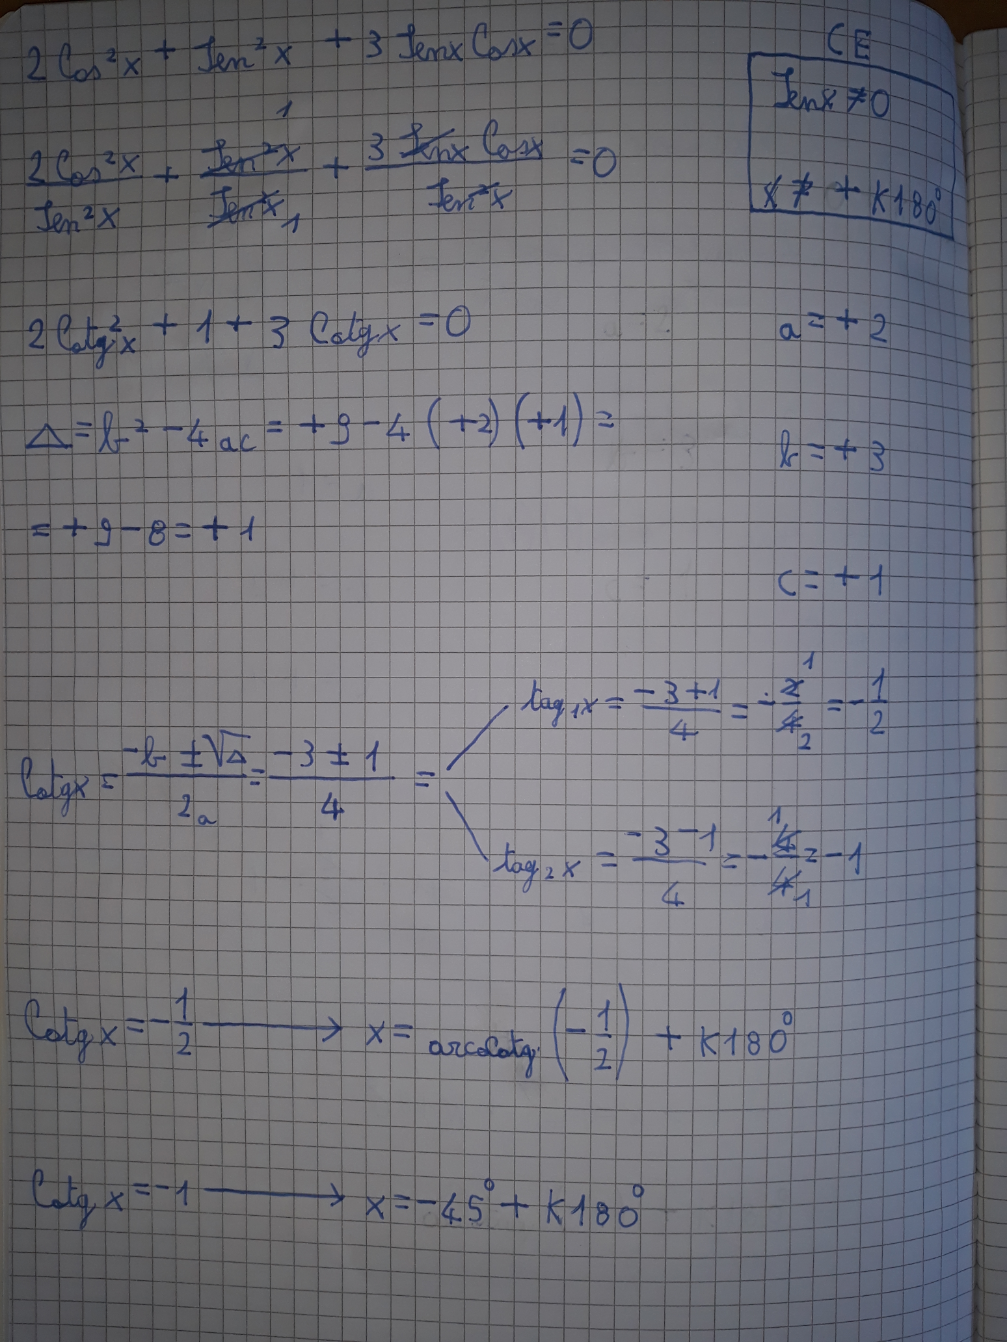 2 Cos²x + Sen²x + 3 Senx Cosx = 0
CE
Senx ≠ 0
x ≠ + K180°
2Cos²x/Sen²x + Sen²x/Sen²x + 3 Senx Cosx/Sen²x = 0
1
1
2 Cotg²x + 1 + 3 Cotgx = 0
a = + 2
Δ = b² - 4ac = + 9 - 4 (+2) (+1) =
b = + 3
= + 9 - 8 = + 1
c = + 1
Cotgx = -b ± √Δ/2a = -3 ± 1/4 =
tag₁x = -3+1/4 = -2/4 = -1/2
1
2
tag₂x = -3-1/4 = -4/4 = -1
1
1
Cotgx = -1/2 → x = arcoCotg (-1/2) + K180°
Cotgx = -1 → x = -45° + K180°